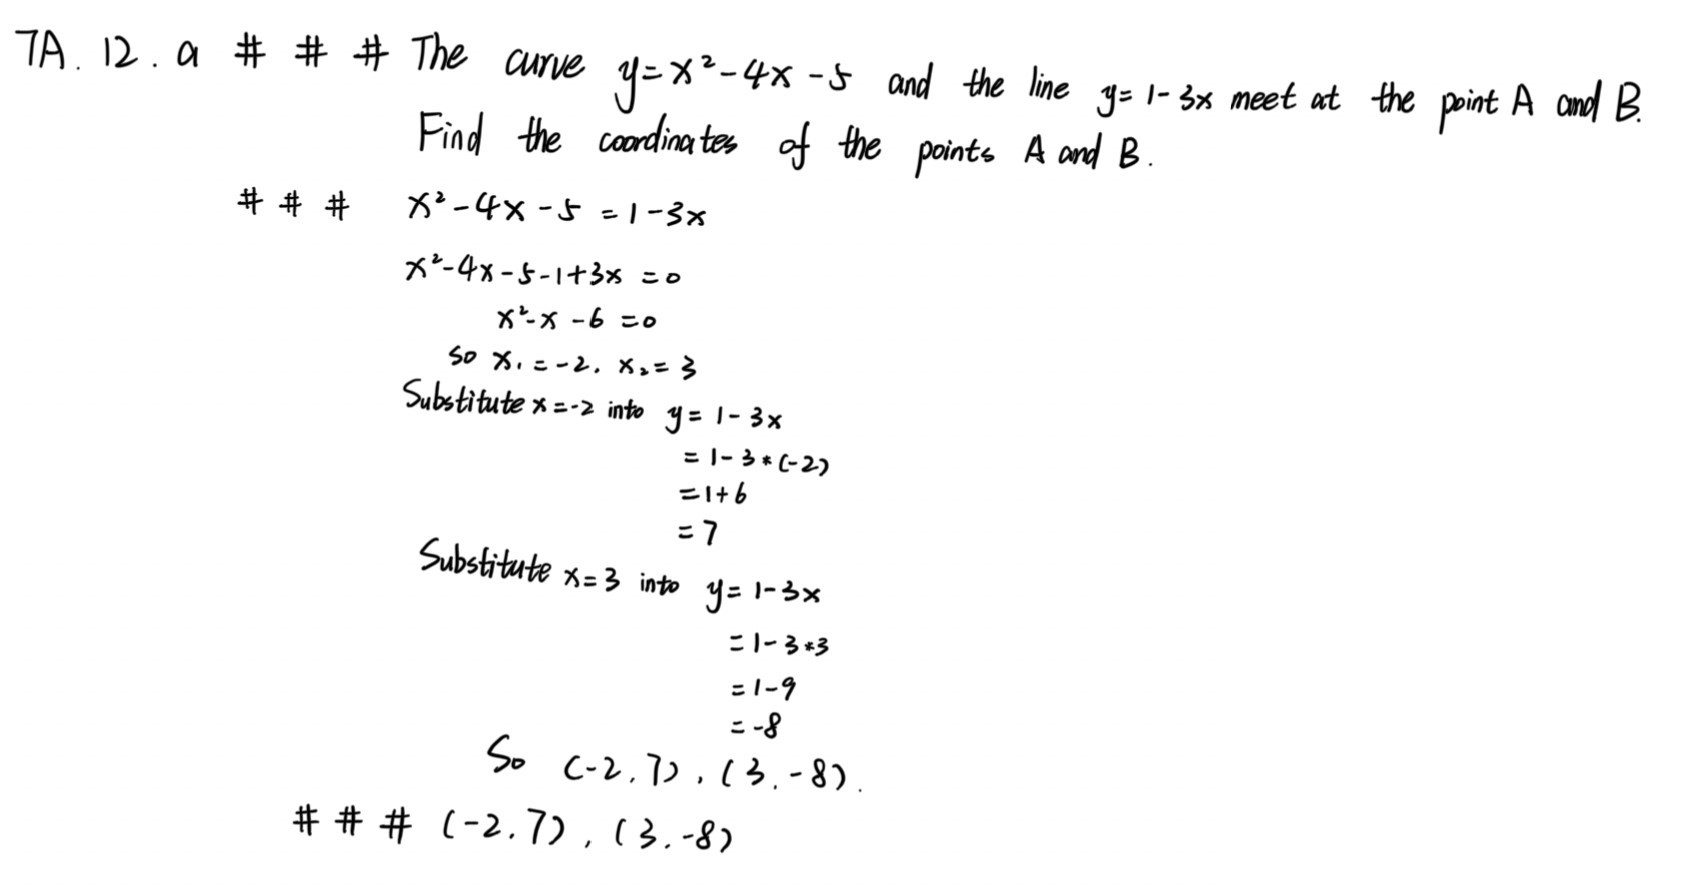 7A. 12. a # # # The curve y=x²-4x-5 and the line y=1-3x meet at the point A and B.
Find the coordinates of the points A and B.
# # # x²-4x-5=1-3x
x²-4x-5-1+3x=0
x²-x-6=0
so x₁=-2. x₂=3
Substitute x=-2 into y=1-3x
=1-3*(-2)
=1+6
=7
Substitute x=3 into y=1-3x
=1-3*3
=1-9
=-8
So (-2,7), (3,-8).
# # # (-2,7), (3,-8)